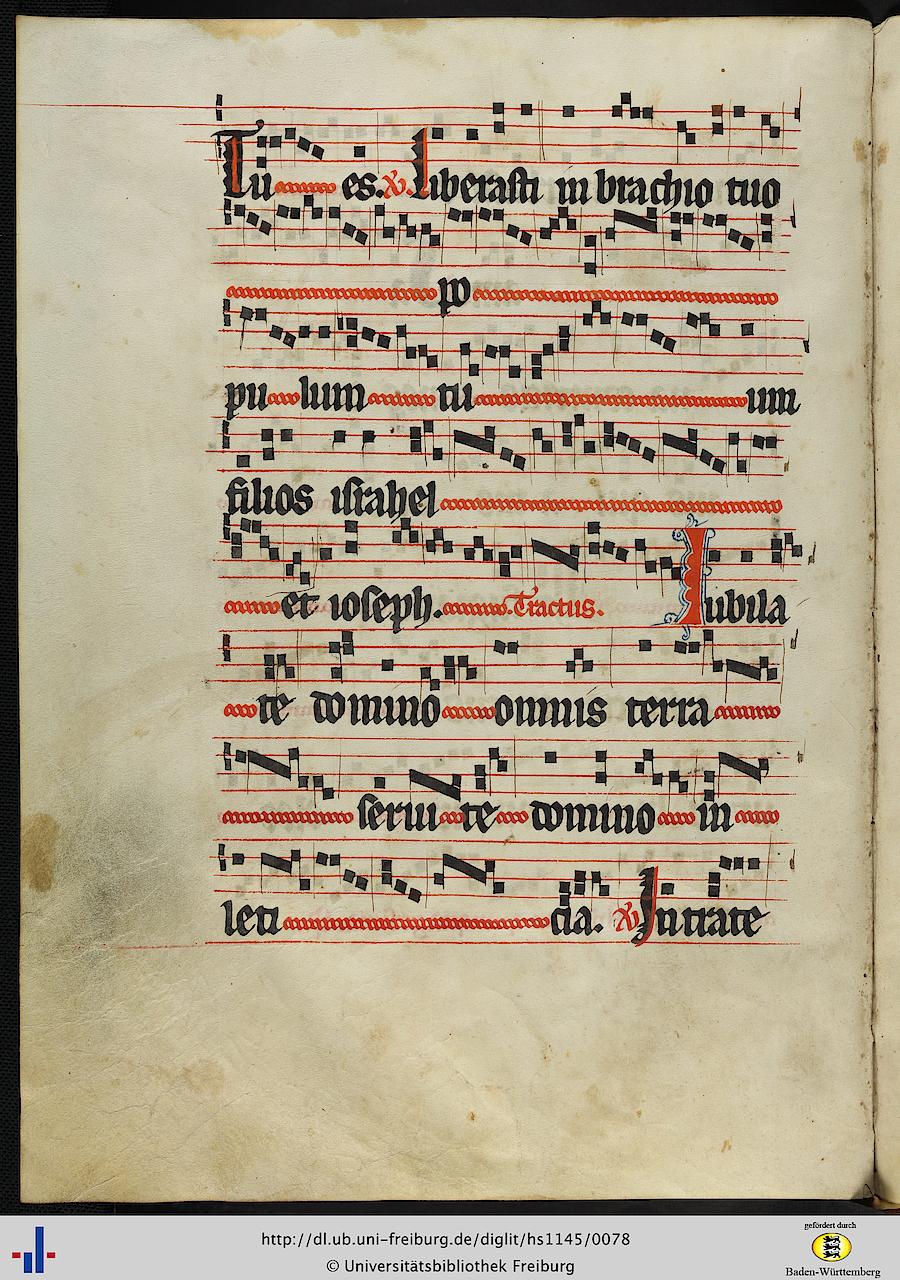 Tu es. V. Liberasti in brachio tuo
po
pu lum tu um
filios israhel
et ioseph. Tractus. Iubila
te domino omnis terra
serui te domino in
leti cia. V. Intrate
http://dl.ub.uni-freiburg.de/diglit/hs1145/0078
© Universitätsbibliothek Freiburg
gefördert durch
Baden-Württemberg